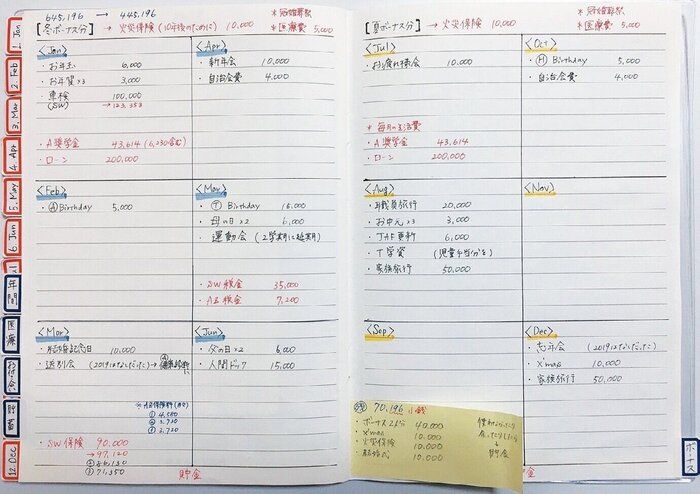 1. Jan
2. Feb
3. Mar
4. Apr
5. May
6. Jun
年間
医療
貯蓄
12. Dec
645,196 → 445,196
[冬ボーナス分] → 火災保険 (10年後のために) 10,000
*冠婚葬祭
*医療費 5,000
<Jan>
・お年玉 6,000
・お年賀×3 3,000
・車検 100,000
(SW) → 123,353
・A奨学金 43,614 (6,230含む)
・ローン 200,000
<Apr>
・新年会 10,000
・自治会費 4,000
<Feb>
・Ⓐ Birthday 5,000
<May>
・Ⓣ Birthday 15,000
・母の日×2 6,000
・運動会 (2学期に延期)
・SW税金 35,000
・AB税金 7,200
<Mar>
・結婚記念日 10,000
・送別会 (2019はなしだった)
① 4,080
② 3,720
③ 3,720
・SW保険 90,000
→ 97,120
② 86,130
③ 71,350
<Jun>
・父の日×2 6,000
・人間ドック 15,000
貯金
[夏ボーナス分] → 火災保険 10,000
*冠婚葬祭
*医療費 5,000
<Jul>
・お疲れ様会 10,000
*毎月の生活費
・A奨学金 43,614
・ローン 200,000
<Oct>
・Ⓗ Birthday 5,000
・自治会費 4,000
<Aug>
・職員旅行 20,000
・お中元×3 3,000
・JAF更新 6,000
・T学資 (児童手当分を)
・家族旅行 50,000
<Nov>
<Sep>
<Dec>
・忘年会 (2019はなしだった)
・X'mas 10,000
・家族旅行 50,000
70,196
・ボーナス 40,000
・X'mas 10,000
・火災保険 10,000
・結婚式 10,000
貯金
貯金
ボーナス